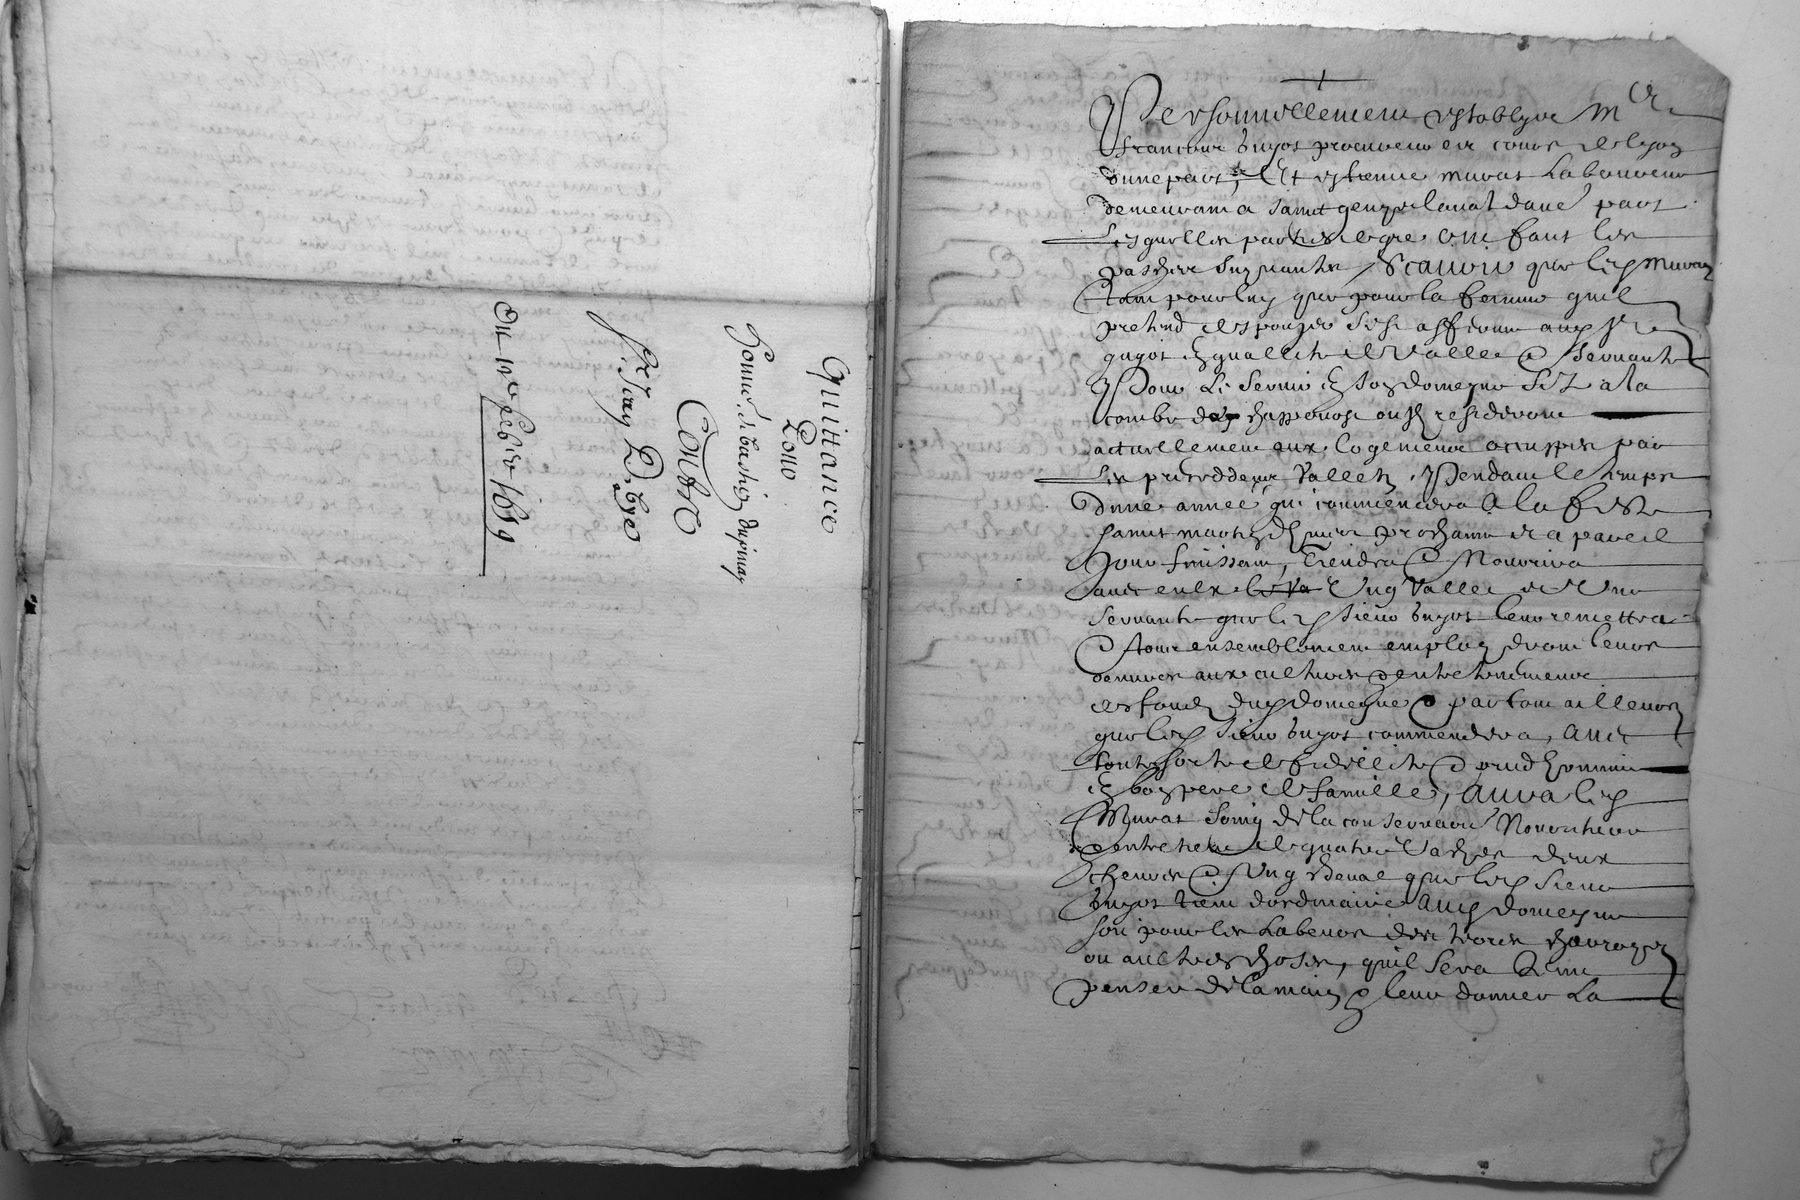 Quittance
Pour
honnes. sebastien dupinay
Contre
Sr Jean
du febvrier 1659
Personnellement establys Me
francois buyot procureur es cours de lyon
dune part, Et estienne murat laboureur
demeurant a sainct genys laval daue part
Lesquelles parties de gre ont fait les
pasches suyvantes, Scavoir que led murat
tant pour luy que pour la femme quil
pretend despouzer sest afferme aud sr
buyot en quallite de vallet & servante
Pour le servir en son domeyne size a la
combe de chapponost ou ilz resideront
actuellement aux logementz occuppes par
les precedentz valletz. Pendant le temps
dune annee qui commencera a la feste
sainct martin dhyver prochaine et a pareil
jour finissant, Tiendra & Nourrira
avec eulx Ung vallet et Une
servante que led sieur buyot leur remettra
& tous ensemblement employeront leurs
œuvres aux cultures & entretenement
des fondz dud domeyne & partout ailleurs
que led sieur buyot commendera, avec
toute sorte de fidellite & prudhommie
en bon pere de famille, aura led
Murat soing de la conservation Nourriture
& entretien de quatre vaches deux
chevres & Ung cheval que led sieur
buyot tient dordinaire aud domeyne
soit pour les labeurs des terres charroys
ou aultres choses, quil sera tenu
penser de la main & leur donner la